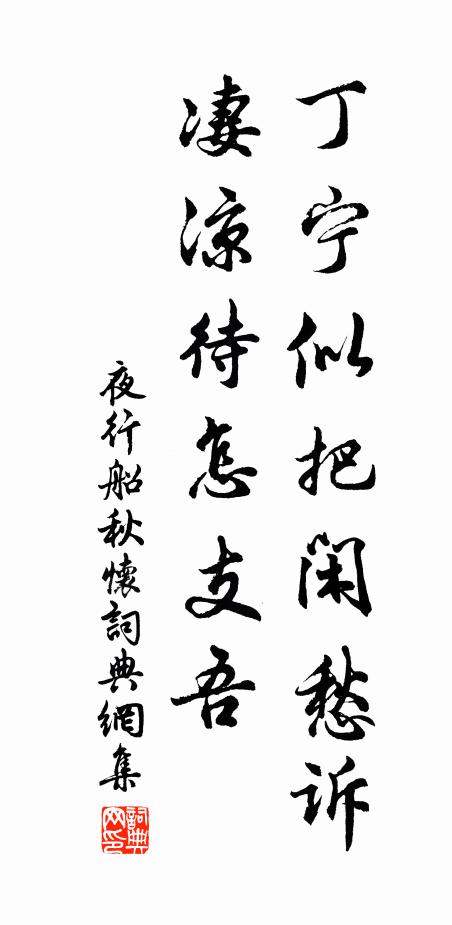 丁宁似把闲愁诉
凄凉待怎支吾
夜行船秋懷詞典網集
詞典
网印